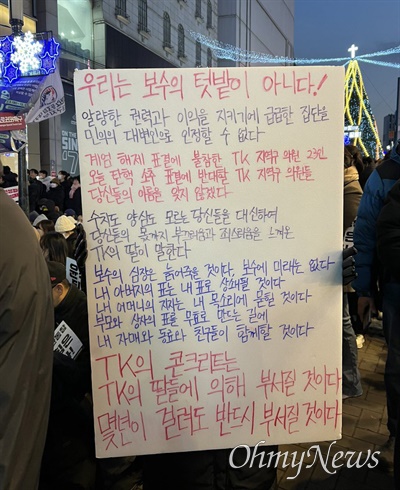 우리는 보수의 텃밭이 아니다!
알량한 권력과 이익을 지키기에 급급한 집단을
민의의 대변인으로 인정할 수 없다
계엄 해제 표결에 불참한 TK 지역구 의원 23인
오늘 탄핵 소추 표결에 반대할 TK 지역구 의원들
당신들의 이름을 잊지 않겠다
수치도 양심도 모르는 당신들을 대신하여
당신들의 몫까지 부끄러움과 죄스러움을 느끼는
TK의 딸이 말한다
보수의 심장은 늙어죽을 것이다. 보수에 미래는 없다
내 아버지의 표는 내 표로 상쇄될 것이다
내 어머니의 지지는 내 목소리에 묻힐 것이다
부모와 상사의 표를 무효로 만드는 길에
내 자매와 동료와 친구들이 함께할 것이다
TK의 콘크리트는
TK의 딸들에 의해 부서질 것이다
몇년이 걸려도 반드시 부서질 것이다
OhmyNews